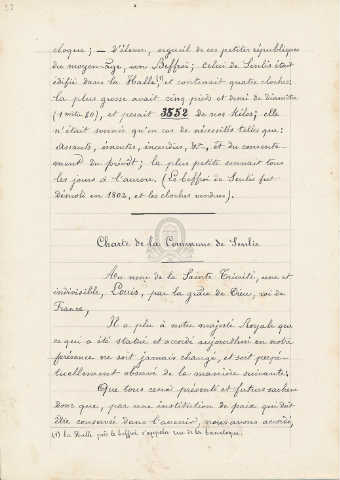 cloque; — d'élever, orgueil de ces petites républiques
du moyen-âge, son Beffroi; celui de Senlis était
édifié dans la Halle,(1) et contenait quatre cloches:
la plus grosse avait cinq pieds et demi de diamètre
(1 mètre 80), et pesait 3552 de nos kilos; elle
n'était sonnée qu'en cas de nécessités telles que:
assauts, émeutes, incendies, &a, et du consente-
ment du prévôt; la plus petite sonnait tous
les jours à l'aurore. (Le beffroi de Senlis fut
démoli en 1802, et les cloches vendues).
Charte de la Commune de Senlis
Au nom de la Sainte Trinité, une et
indivisible, Louis, par la grâce de Dieu, roi de
France,
Il a plu à notre majesté Royale que
ce qui a été statué et accordé aujourd'hui en notre
présence ne soit jamais changé, et soit perpé-
tuellement observé de la manière suivante:
Que tous ceux présents et futurs sachent
donc que, par une institution de paix qui doit
être conservée dans l'avenir, nous avons accordé,
(1) La Halle près le beffroi s'appela rue de la